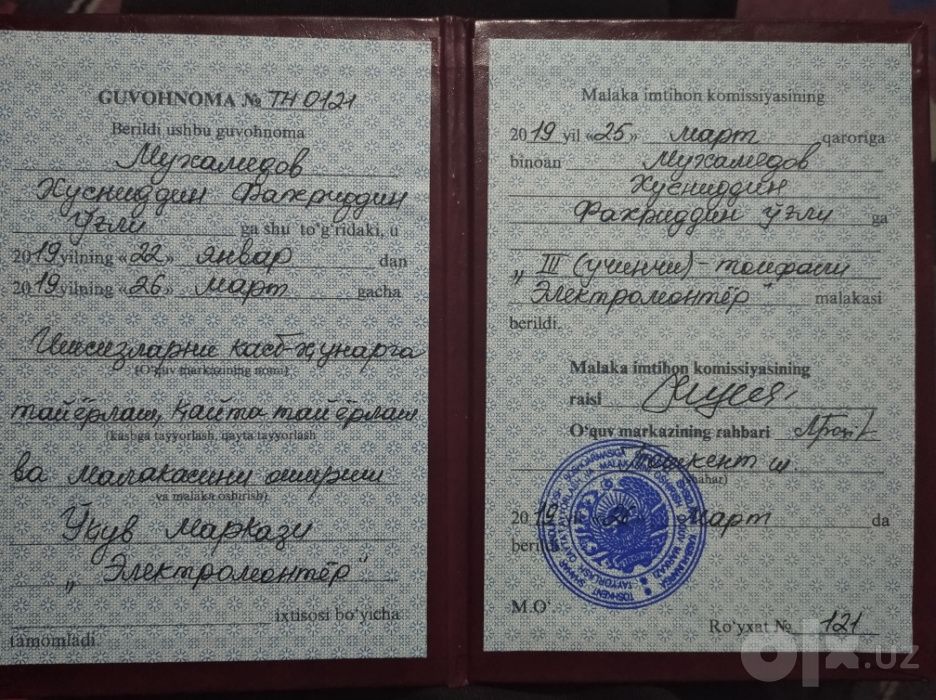 GUVOHNOMA № ТН 0121
Berildi ushbu guvohnoma
Мухамедов
Хусниддин Фахриддин
ўғли ga shu to‘g‘ridaki, u
2019 yilning «22» январ dan
2019 yilning «26» март gacha
Ишсизларни касб-ҳунарга
(O‘quv markazining nomi)
тайёрлаш, қайта тайёрлаш
(kasbga tayyorlash, qayta tayyorlash
ва малакасини ошириш
va malaka oshirish)
Ўқув маркази
„Электромонтёр"
ixtisosi bo‘yicha
tamomladi.
Malaka imtihon komissiyasining
2019 yil «25» март qaroriga
binoan Мухамедов
Хусниддин
Фахриддин ўғли ga
„III (учинчи)-тоифали
Электромонтёр" malakasi
berildi.
Malaka imtihon komissiyasining
raisi
O‘quv markazining rahbari
Тошкент ш.
(shahar)
2019 yil «26» март da
berildi
M.O‘.
Ro‘yxat № 121
olx.uz